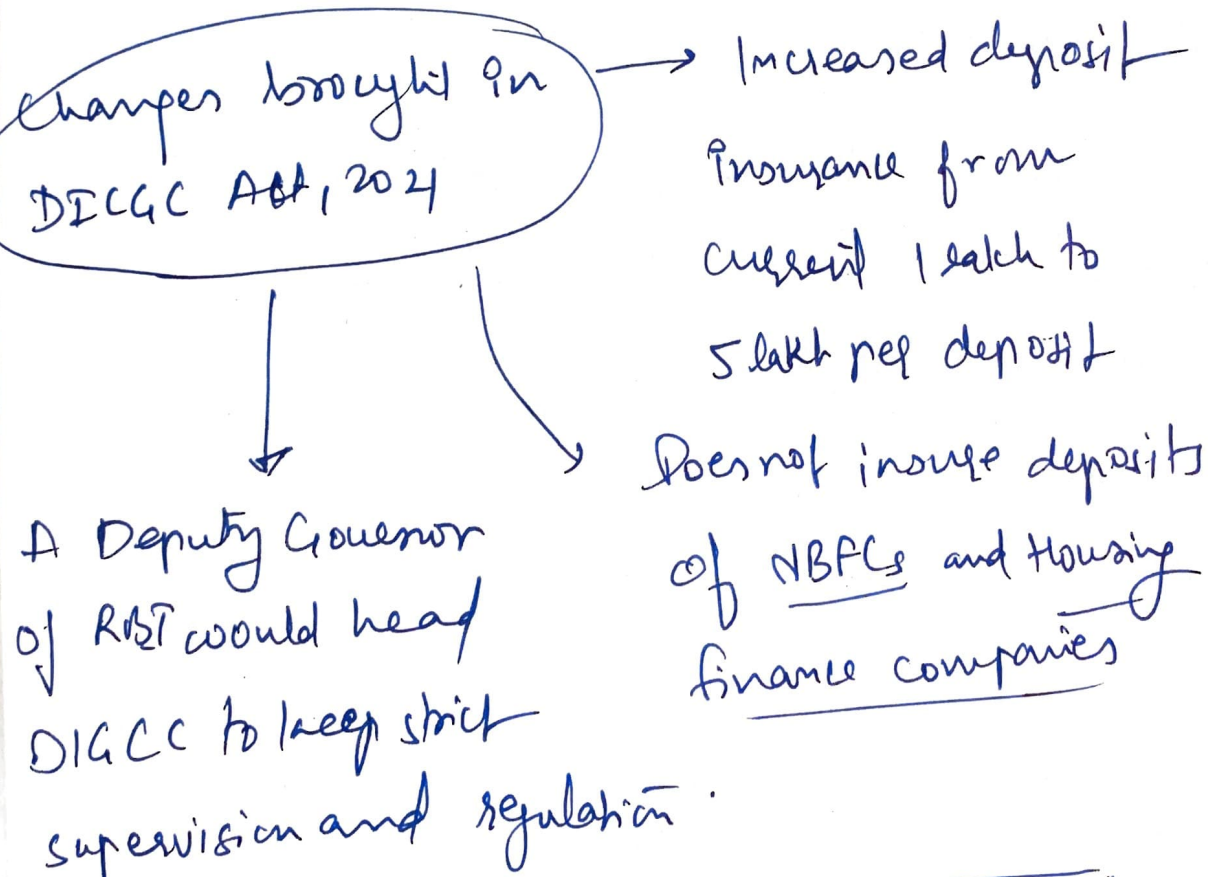 Changes brought in
DICGC Act, 2021
Increased deposit
insurance from
current 1 lakh to
5 lakh per deposit
Does not insure deposits
of NBFCs and Housing
finance companies
A Deputy Governor
of RBI would head
DIGCC to keep strict
supervision and regulation.